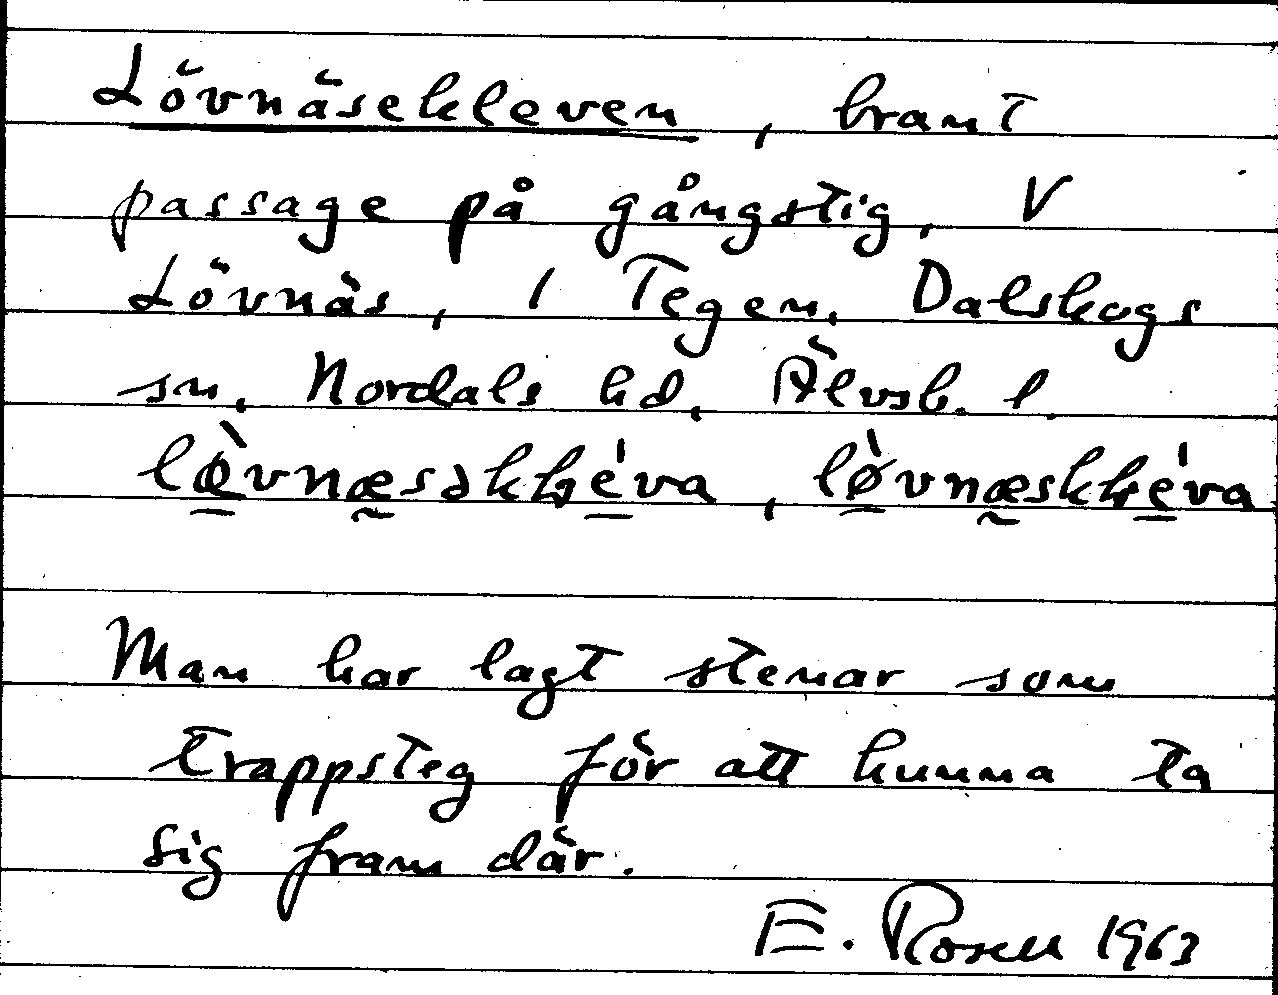 Lövnäsekleven, brant
passage på gångstig, V
Lövnäs, 1 Tegen, Dalskogs
sn, Nordals hd, Älvsb. l.
Man har lagt stenar som
trappsteg för att kunna ta
sig fram där.
E. Rosell 1963